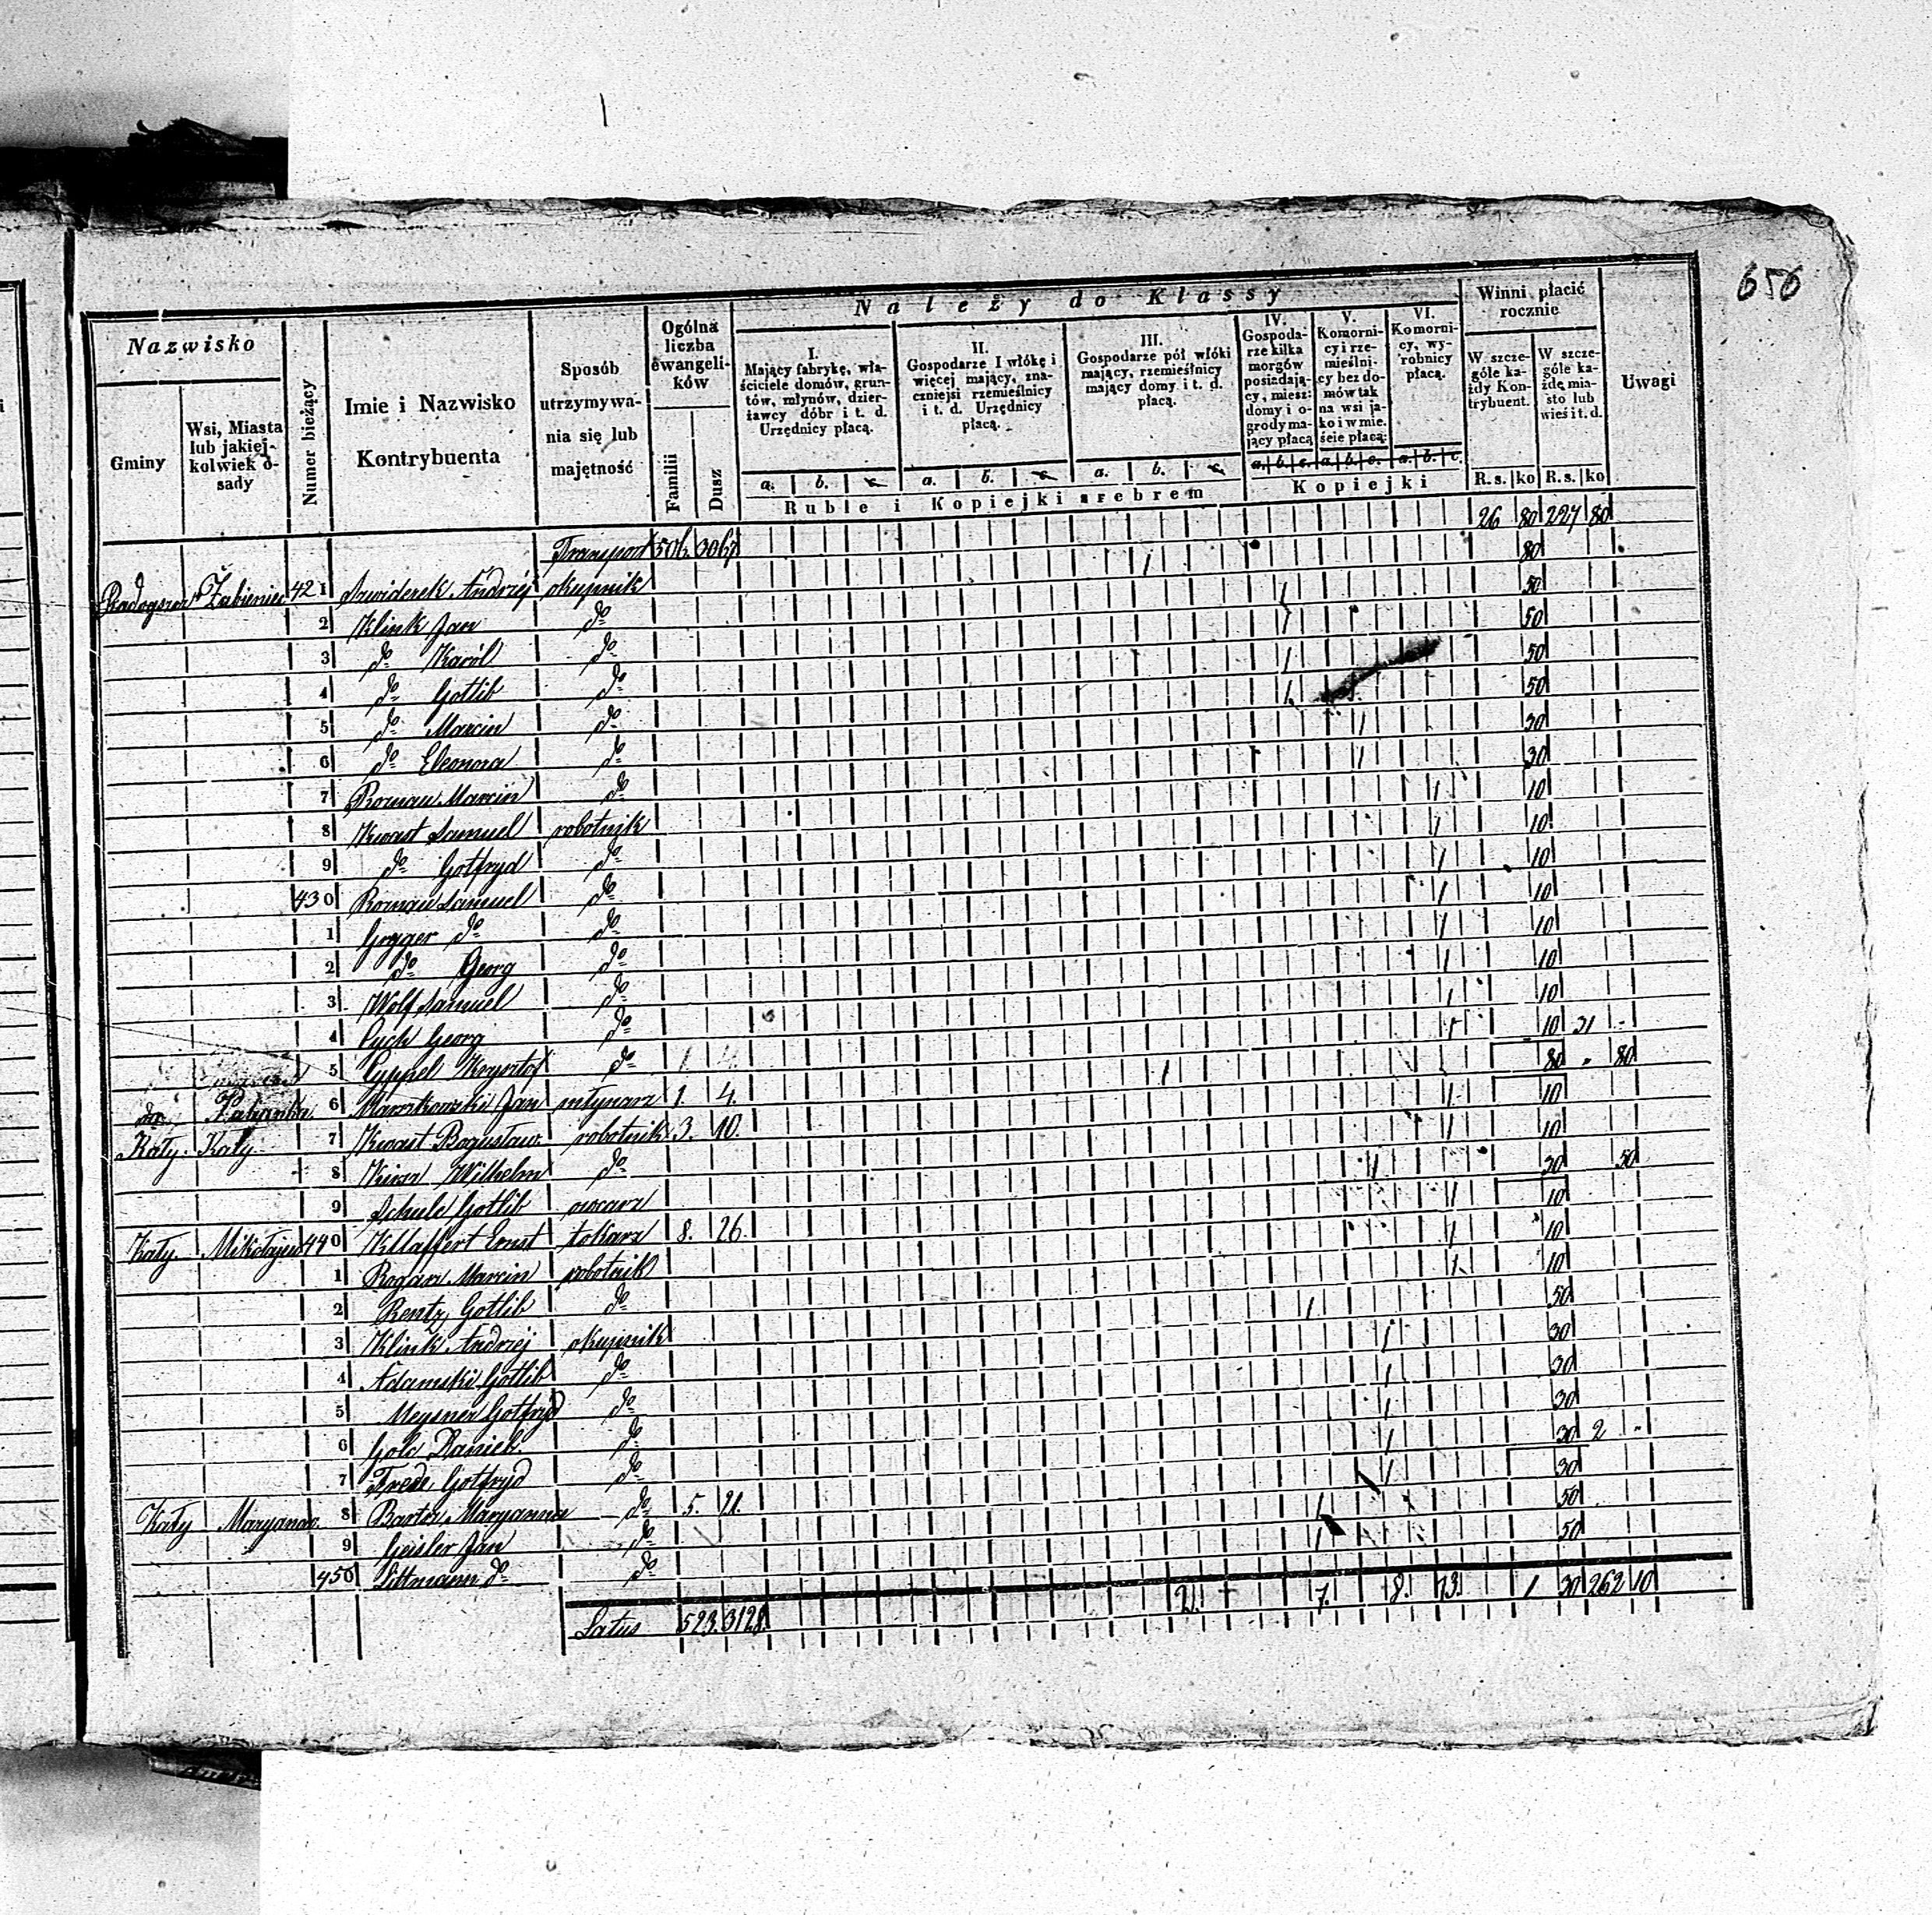 656
Nazwisko
Gminy
Wsi, Miasta lub jakiej-kolwiek o-sady
Numer bieżący
Imie i Nazwisko Kontrybuenta
Sposób utrzymywa-nia się lub majętność
Ogólna liczba ewangeli-ków
Familii
Dusz
Należy do Klassy
I. Mający fabrykę, wła-ściciele domów, grun-tów, młynów, dzier-żawcy dóbr i t. d. Urzędnicy płacą.
II. Gospodarze I włókę i więcej mający, zna-czniejsi rzemieślnicy i t. d. Urzędnicy płacą.
III. Gospodarze pół włóki mający, rzemieślnicy mający domy i t. d. płacą.
IV. Gospoda-rze kilka morgów posiadają-cy, miesz: domy i o-grody ma-jący płacą
V. Komorni-cy i rze-mieślni-cy bez do-mów tak na wsi ja-ko i w mie-ście płacą:
VI. Komorni-cy, wy-robnicy płacą.
a. b. c. a. b. c. a. b. c. a. b. c. a. b. c. a. b. c.
Ruble i Kopiejki srebrem
Kopiejki
Winni płacić rocznie
W szcze-góle ka-żdy Kon-trybuent.
W szcze-góle ka-żde mia-sto lub wieś i t. d.
R.s. ko R.s. ko
Uwagi
Transport 506. 3067 26 80 227 80
Radogszcz Żabieniec 421 Szwiderek Andrzéj okupnik 1 80
2 Klink Jan do 1 50
3 do Karól do 1 50
4 do Gotlib do 1 50
5 do Marcin do 1 50
6 do Eleonora do 1 30
7 Roznau Marcin do 1 30
8 Kwast Samuel robotnik 1 10
9 do Gotfryd do 1 10
430 Roznau Samuel do 1 10
1 Gryger do do 1 10
2 do Georg do 1 10
3 Wolf Samuel do 1 10
4 Puch Georg do 1 10
5 Cyppel Krysztof do 1 10 21 -
do Kabanka 6 Marszkowski Jan młynarz 1. 4. 1 80 " 80
Kały Kały 7 Kwast Bogusław robotnik 3. 10. 1 10
8 Wilhelm do 1 10
9 Schulc Gotlib owcarz 1 30 50
Kały Mikołajew 440 Kllaffert Ernst tokarz 8. 26. 1 10
1 Rogacz Marcin robotnik 1 10
2 Rentz Gotlib do 1 10
3 Klink Andrzej okupnik 1 50
4 Adamski Gotlib do 1 30
5 Meysner Gotfryd do 1 30
6 Golc Daniel do 1 30
7 Frede Gotfryd do 1 30 2 -
Kały Maryanow 8 Bartez Maryanna do 5. 21. 1 30
9 Geisler Jan do 1 50
450 Littmann do do 1 50
Latus 523. 3128. 2. 7. 8. 13. 1 30 262 10